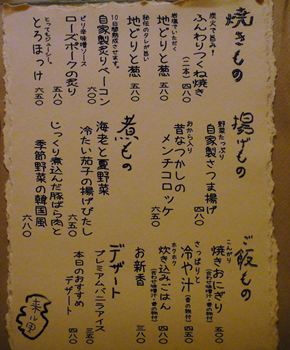 焼きもの
炭火で香ばしく
ふんわりつくね焼き
(二本) 四八〇
岩塩でいただく
地どりと葱 五八〇
秘伝のタレが旨い
地どりと葱 五八〇
10日間熟成させます。
自家製炙りベーコン 六五〇
ピリ辛味噌ソース
ローズポークの炙り 五八〇
とってもジューシー。
とろほっけ 六五〇
揚げもの
野菜たっぷり
自家製さつま揚げ 四八〇
おから入り
昔なつかしの
メンチコロッケ 六五〇
煮もの
海老と夏野菜
冷たい茄子の揚げびたし 六五〇
じっくり煮込んだ豚ばら肉と
季節野菜の韓国風 六八〇
ご飯もの
こんがり
焼きおにぎり 五〇〇
(合わせ味噌汁・香の物付)
さっぱりと
冷や汁 四五〇
(香の物付)
ホクホク
炊き込みごはん 四八〇
(合わせ味噌汁・香の物付)
お新香 三八〇
デザート
プレミアムバニラアイス 三五〇
本日のおすすめ
デザート 四八〇